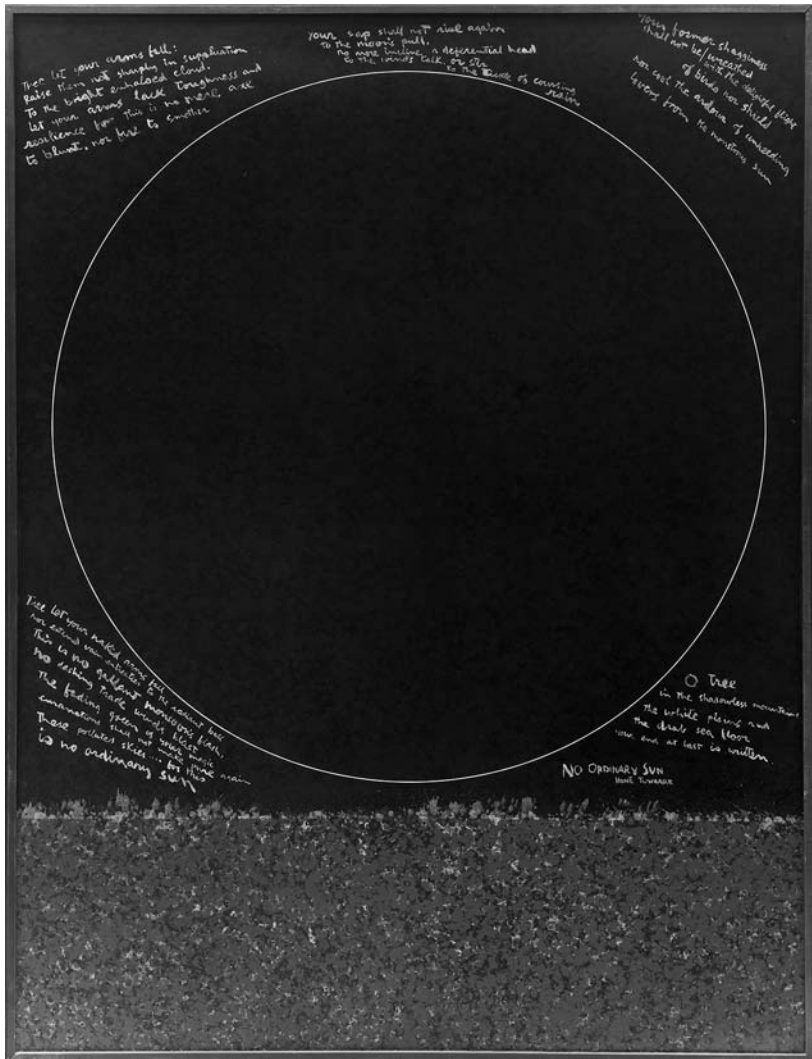 Tree let your arms fall:
Raise them not sharply in supplication
To the bright enhaloed cloud.
Let your arms lack toughness and
resilience for this is no mere axe
to blunt, nor fire to smother
Your sap shall not rise again
to the moon's pull.
No more incline a deferential head
to the wind's talk, or stir
to the tickle of coursing
rain
Your former shagginess
shall not be wreathed
with the delightful flight
of birds nor shield
nor cool the ardour of unheeding
lovers from the monstrous sun
Tree let your naked arms fall
nor extend vain entreaties to the radiant ball
This is no gallant monsoon's flash,
no dashing trade wind's blast
The fading green of your magic
emanations shall not make pure again
These polluted skies... for this
is no ordinary sun
O Tree
in the shadowless mountains
the white plains and
the drab sea floor
your end at last is written.
NO ORDINARY SUN
HONE TUWHARE